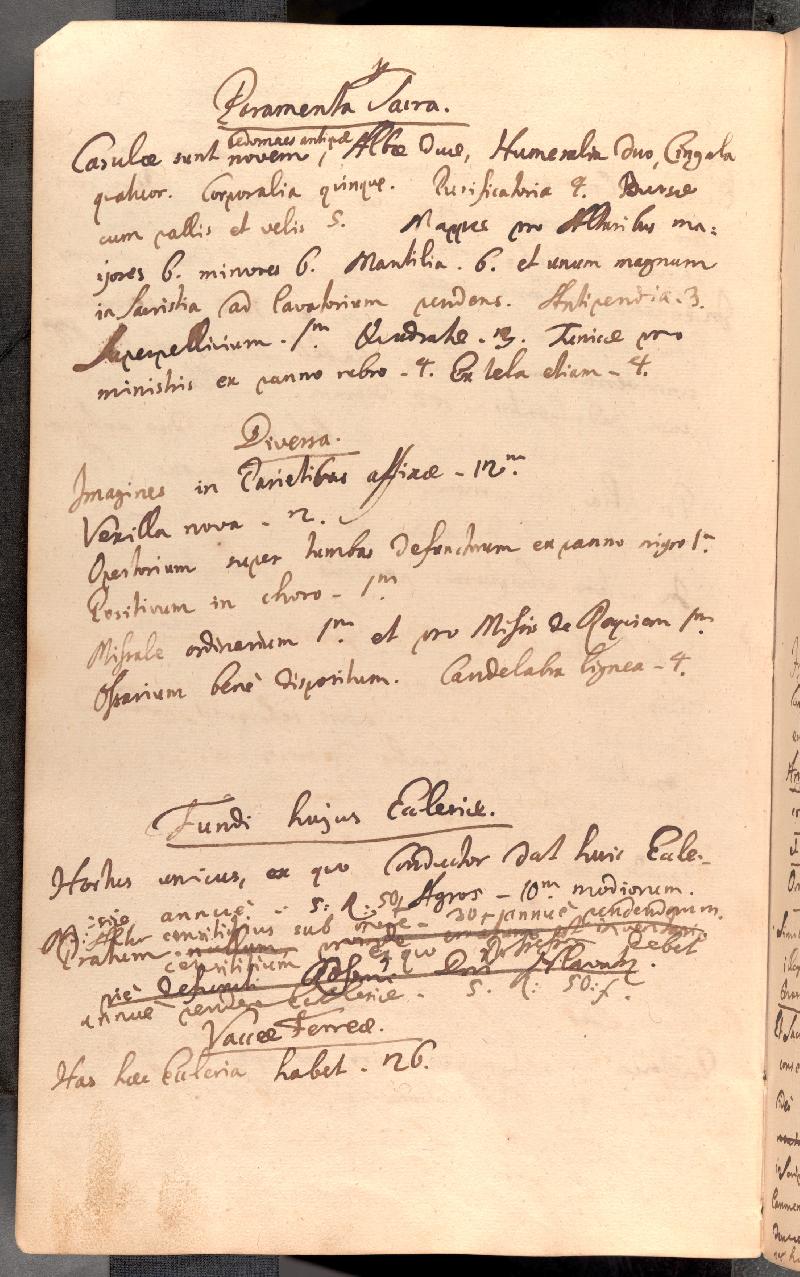 Paramenta Sacra.
Casulæ sunt novem, Albæ Duæ, Humeralia Duo, Cingula
quatuor. Corporalia quinque. Purificatoria 9. Bursæ
cum pallis et velis 5. Mappæ pro Altaribus ma=
jores 6. minores 6. Mantilia . 6. et unum magnum
in Sacristia ad Lavatorium pendens. Antipendia . 3.
Superpellicium . 1m Quadrata . 3. Tunicæ pro
ministris ex panno rubro - 4. Ex tela etiam - 4.
Diversa.
Imagines in Parietibus affixæ - 12m.
Vexilla nova - 2.
Opertorium super tumbas Defunctorum ex panno nigro 1m
Positivum in choro - 1m
Missale ordinarium 1m et pro Missis de Requiem 1m
Ossarium benè dispositum. Candelabra lignea - 4.
Fundi hujus Ecclesiæ.
Hortus unicus, ex quo Conductor dat huic Eccle-
siæ annuè - 5: R: 50f Agros - 10m modiorum.
Alter consitibus sub - 30 annuè pendendorum.
Pratum nullum ex quo Debet
piè Defuncti Dni
annuè pendere Ecclesiæ - 5. R: 50:f.
Vaccæ Ferreæ.
Has hæc Ecclesia habet - 26.